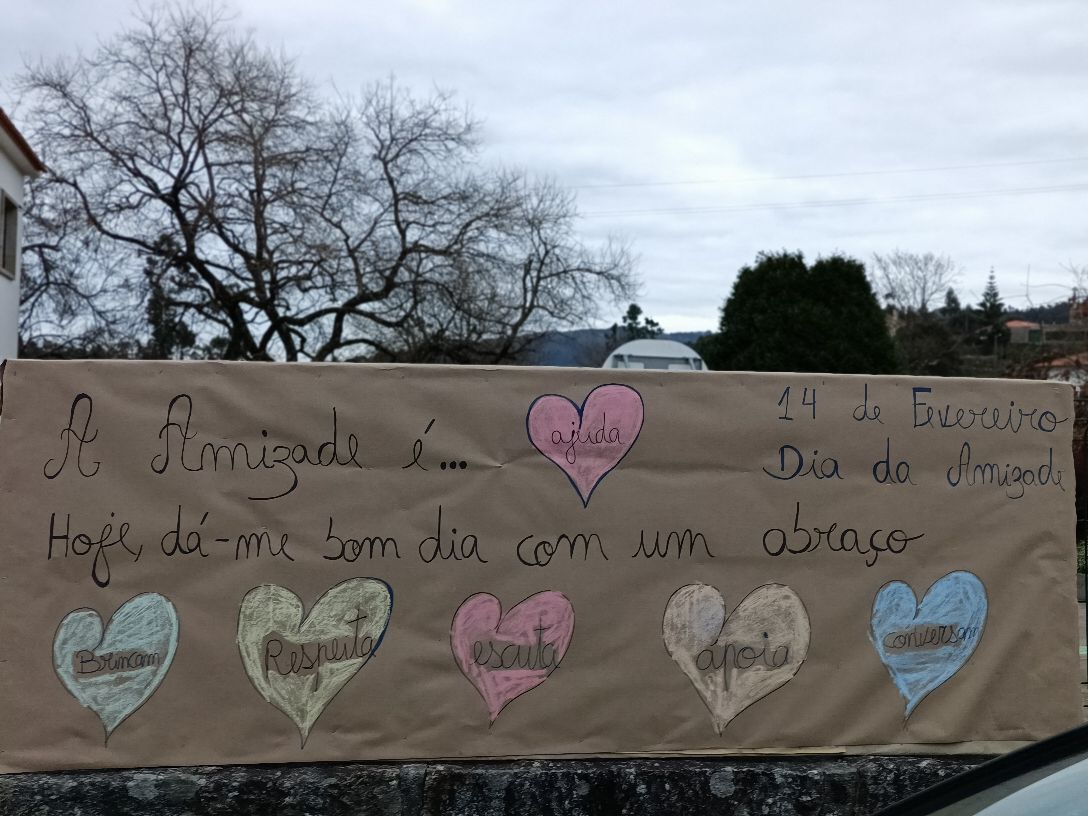 A Amizade é...
ajuda
14 de Fevereiro
Dia da Amizade
Hoje, dá-me bom dia com um abraço
Brincam
Respeita
escuta
ápoia
conversam